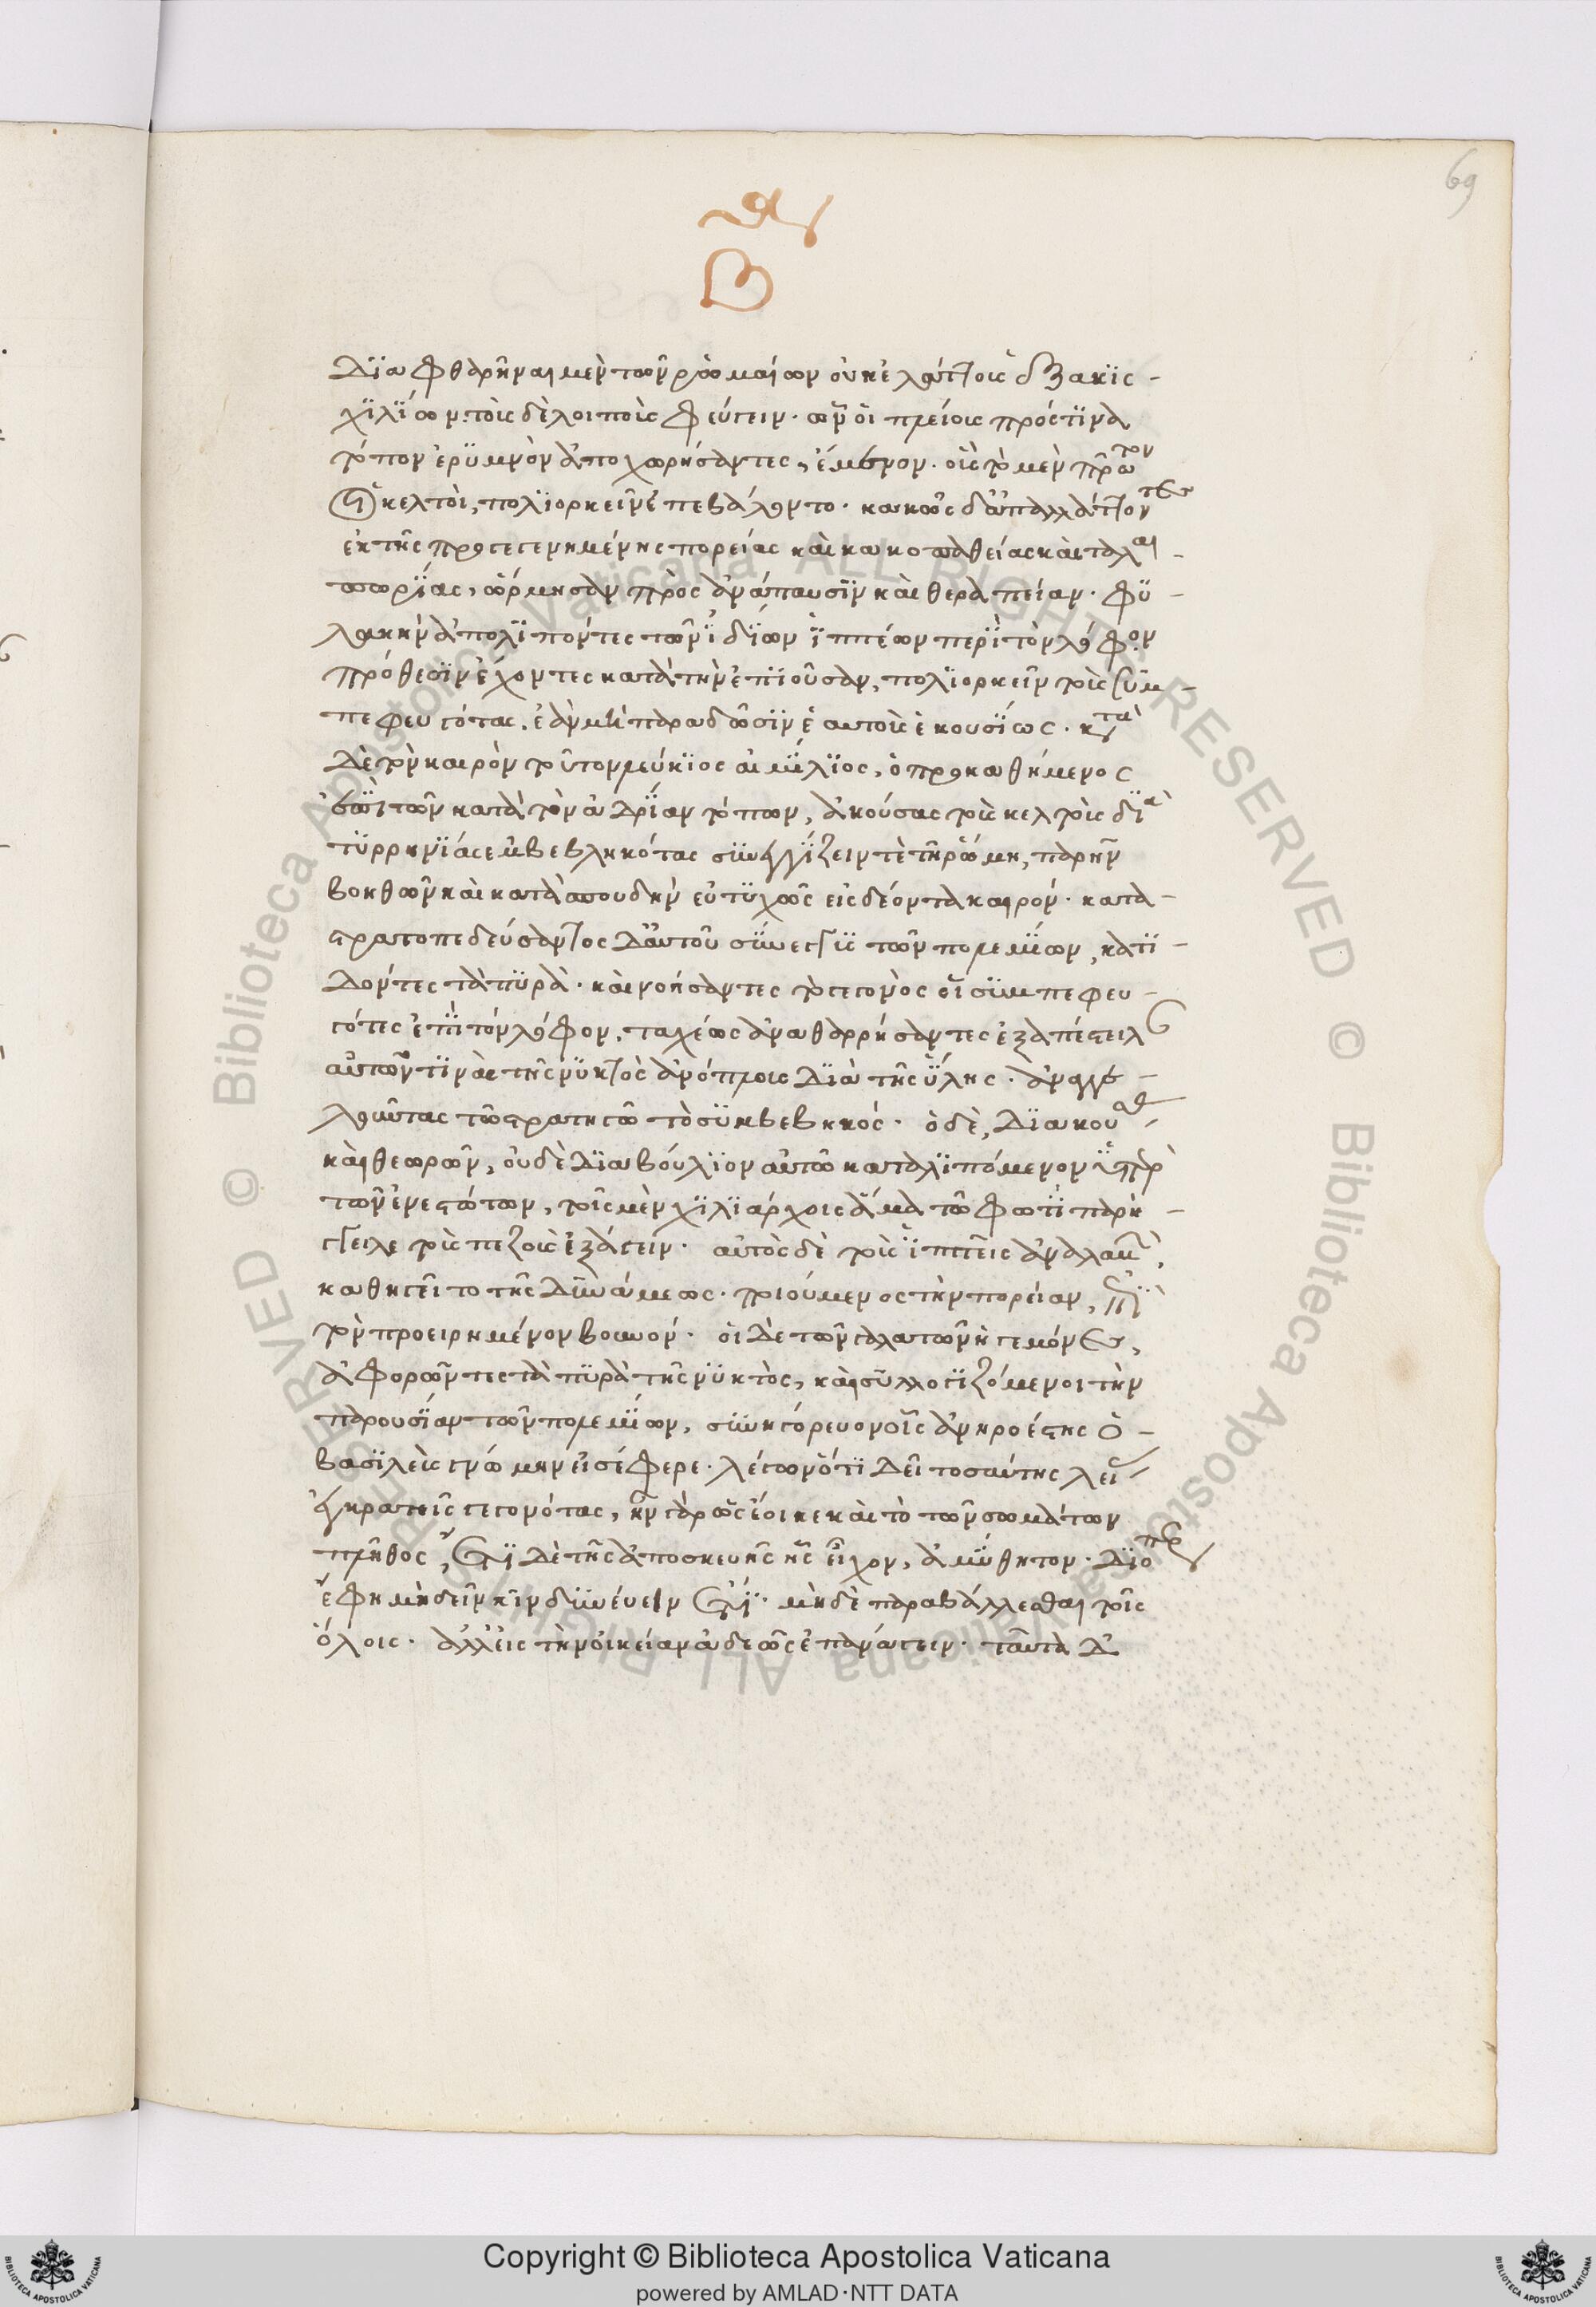 69
Β
διαφθαρῆναι μὲν τῶν ῥωμαίων οὐκ ἐλάττους ἑξακισ-
χιλίων· τοὺς δὲ λοιποὺς φεύγειν· ὧν οἱ πλείους πρός τινα
τόπον ἐρυμνὸν ἀποχωρήσαντες, ἔμενον. οὓς τὸ μὲν πρῶτον
οἱ κελτοὶ, πολιορκεῖν ἐπεβάλοντο· κακῶς δ' ἀπαλλάττοντες
ἐκ τῆς προγεγενημένης πορείας καὶ κακοπαθείας καὶ ταλαι-
πωρίας, ὥρμησαν πρὸς ἀνάπαυσιν καὶ θεραπείαν· φυ-
λακὴν ἀπολιπόντες τῶν ἰδίων ἱππέων περὶ τὸν λόφον
πρόθεσιν ἔχοντες κατὰ τὴν ἐπιοῦσαν, πολιορκεῖν τοὺς συμ-
πεφευγότας, ἐὰν μὴ παραδῶσιν ἑαυτοὺς ἑκουσίως. κατὰ
δὲ τὸν καιρὸν τοῦτον λεύκιος αἰμίλιος, ὁ προκαθήμενος
ἐπὶ τῶν κατὰ τὸν ἀδρίαν τόπων, ἀκούσας τοὺς κελτοὺς διὰ
τυρρηνίας ἐμβεβληκότας συνεγγίζειν τὲ τῆ ῥώμη, παρῆν
βοηθῶν κατὰ σπουδὴν εὐτυχῶς εἰς δέοντα καιρόν· κατα-
στρατοπεδεύσαντος δ' αὐτοῦ σύνεγγυς τῶν πολεμίων, κατι-
δόντες τὰ πυρὰ· καὶ νοήσαντες τὸ γεγονὸς οἱ συμπεφευ-
γότες ἐπὶ τὸν λόφον, ταχέως ἀναθαρρήσαντες ἐξαπέστειλαν
αὑτῶν τινὰς τῆς νυκτὸς ἀνόπλους διὰ τῆς ὕλης. ἀναγγε-
λοῦντας τῶ στρατηγῶ τὸ συμβεβηκός· ὁ δὲ, διακούσας
καὶ θεωρῶν, οὐδὲ διαβούλιον αὑτῶ καταλιπόμενον ὑπὲρ
τῶν ἐνεστώτων, τοῖς μὲν χιλιάρχοις ἅμα τῶ φωτὶ παρή-
γγειλε τοὺς πεζοὺς ἐξάγειν· αὐτὸς δὲ τοὺς ἱππεῖς ἀναλαβὼν,
καθηγεῖτο τῆς δυνάμεως. ποιούμενος τὴν πορείαν, ἐπὶ
τὸν προειρημένον βουνόν· οἱ δὲ τῶν γαλατῶν ἡγεμόνες,
ἀφορῶντες τὰ πυρὰ τῆς νυκτὸς, καὶ συλλογιζόμενοι τὴν
παρουσίαν τῶν πολεμίων, συνηγόρευον οἷς ἀνηροέστης ὁ
βασιλεὺς γνώμην εἰσέφερε. λέγων ὅτι δεῖ τοσαύτης λείας
ἐγκρατεῖς γεγονότας, ἦν γὰρ ὡς ἔοικε καὶ τὸ τῶν σωμάτων
πλῆθος, ἔτι δὲ τῆς ἀποσκευῆς ἧς εἶχον, ἀμύθητον. διόπερ
ἔφη μὴ δεῖν κινδυνεύειν ἔτι· μὴ δὲ παραβάλλεσθαι τοῖς
ὅλοις· ἀλλ' εἰς τὴν οἰκείαν ἀδεῶς ἐπανάγειν· ταῦτα δ'